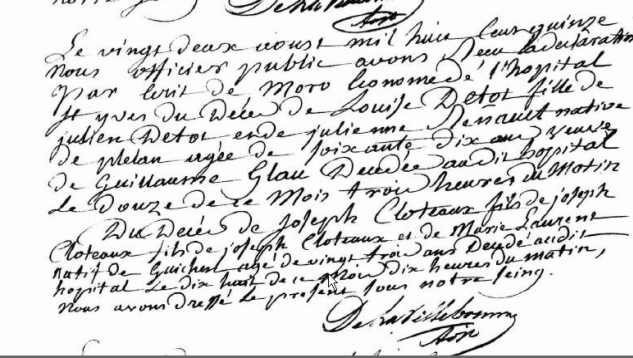 Le vingt deux aoust mil huit cent quinze
Nous officier public avons Recu la declaration
Par Ecrit de Moro Econome de l'hopital
St yves du Décé de Louise Detot fille de
julien Detot et de julienne Renault native
de plelan agée de soixante dix ans veuve
de Guillaume Glau Decedée audit hopital
Le Douze de ce Mois trois heures du Matin
Du Décés de Joseph Cloteaux fils de joseph
Cloteaux fils de joseph Cloteaux et de Marie Laurent
natif de Guichen agé de vingt trois ans Decedé audit
hopital Le dix huit de ce Mois Dix heures du matin,
Nous avons Dressé Le present sous notre seing.
De La Villebrunne